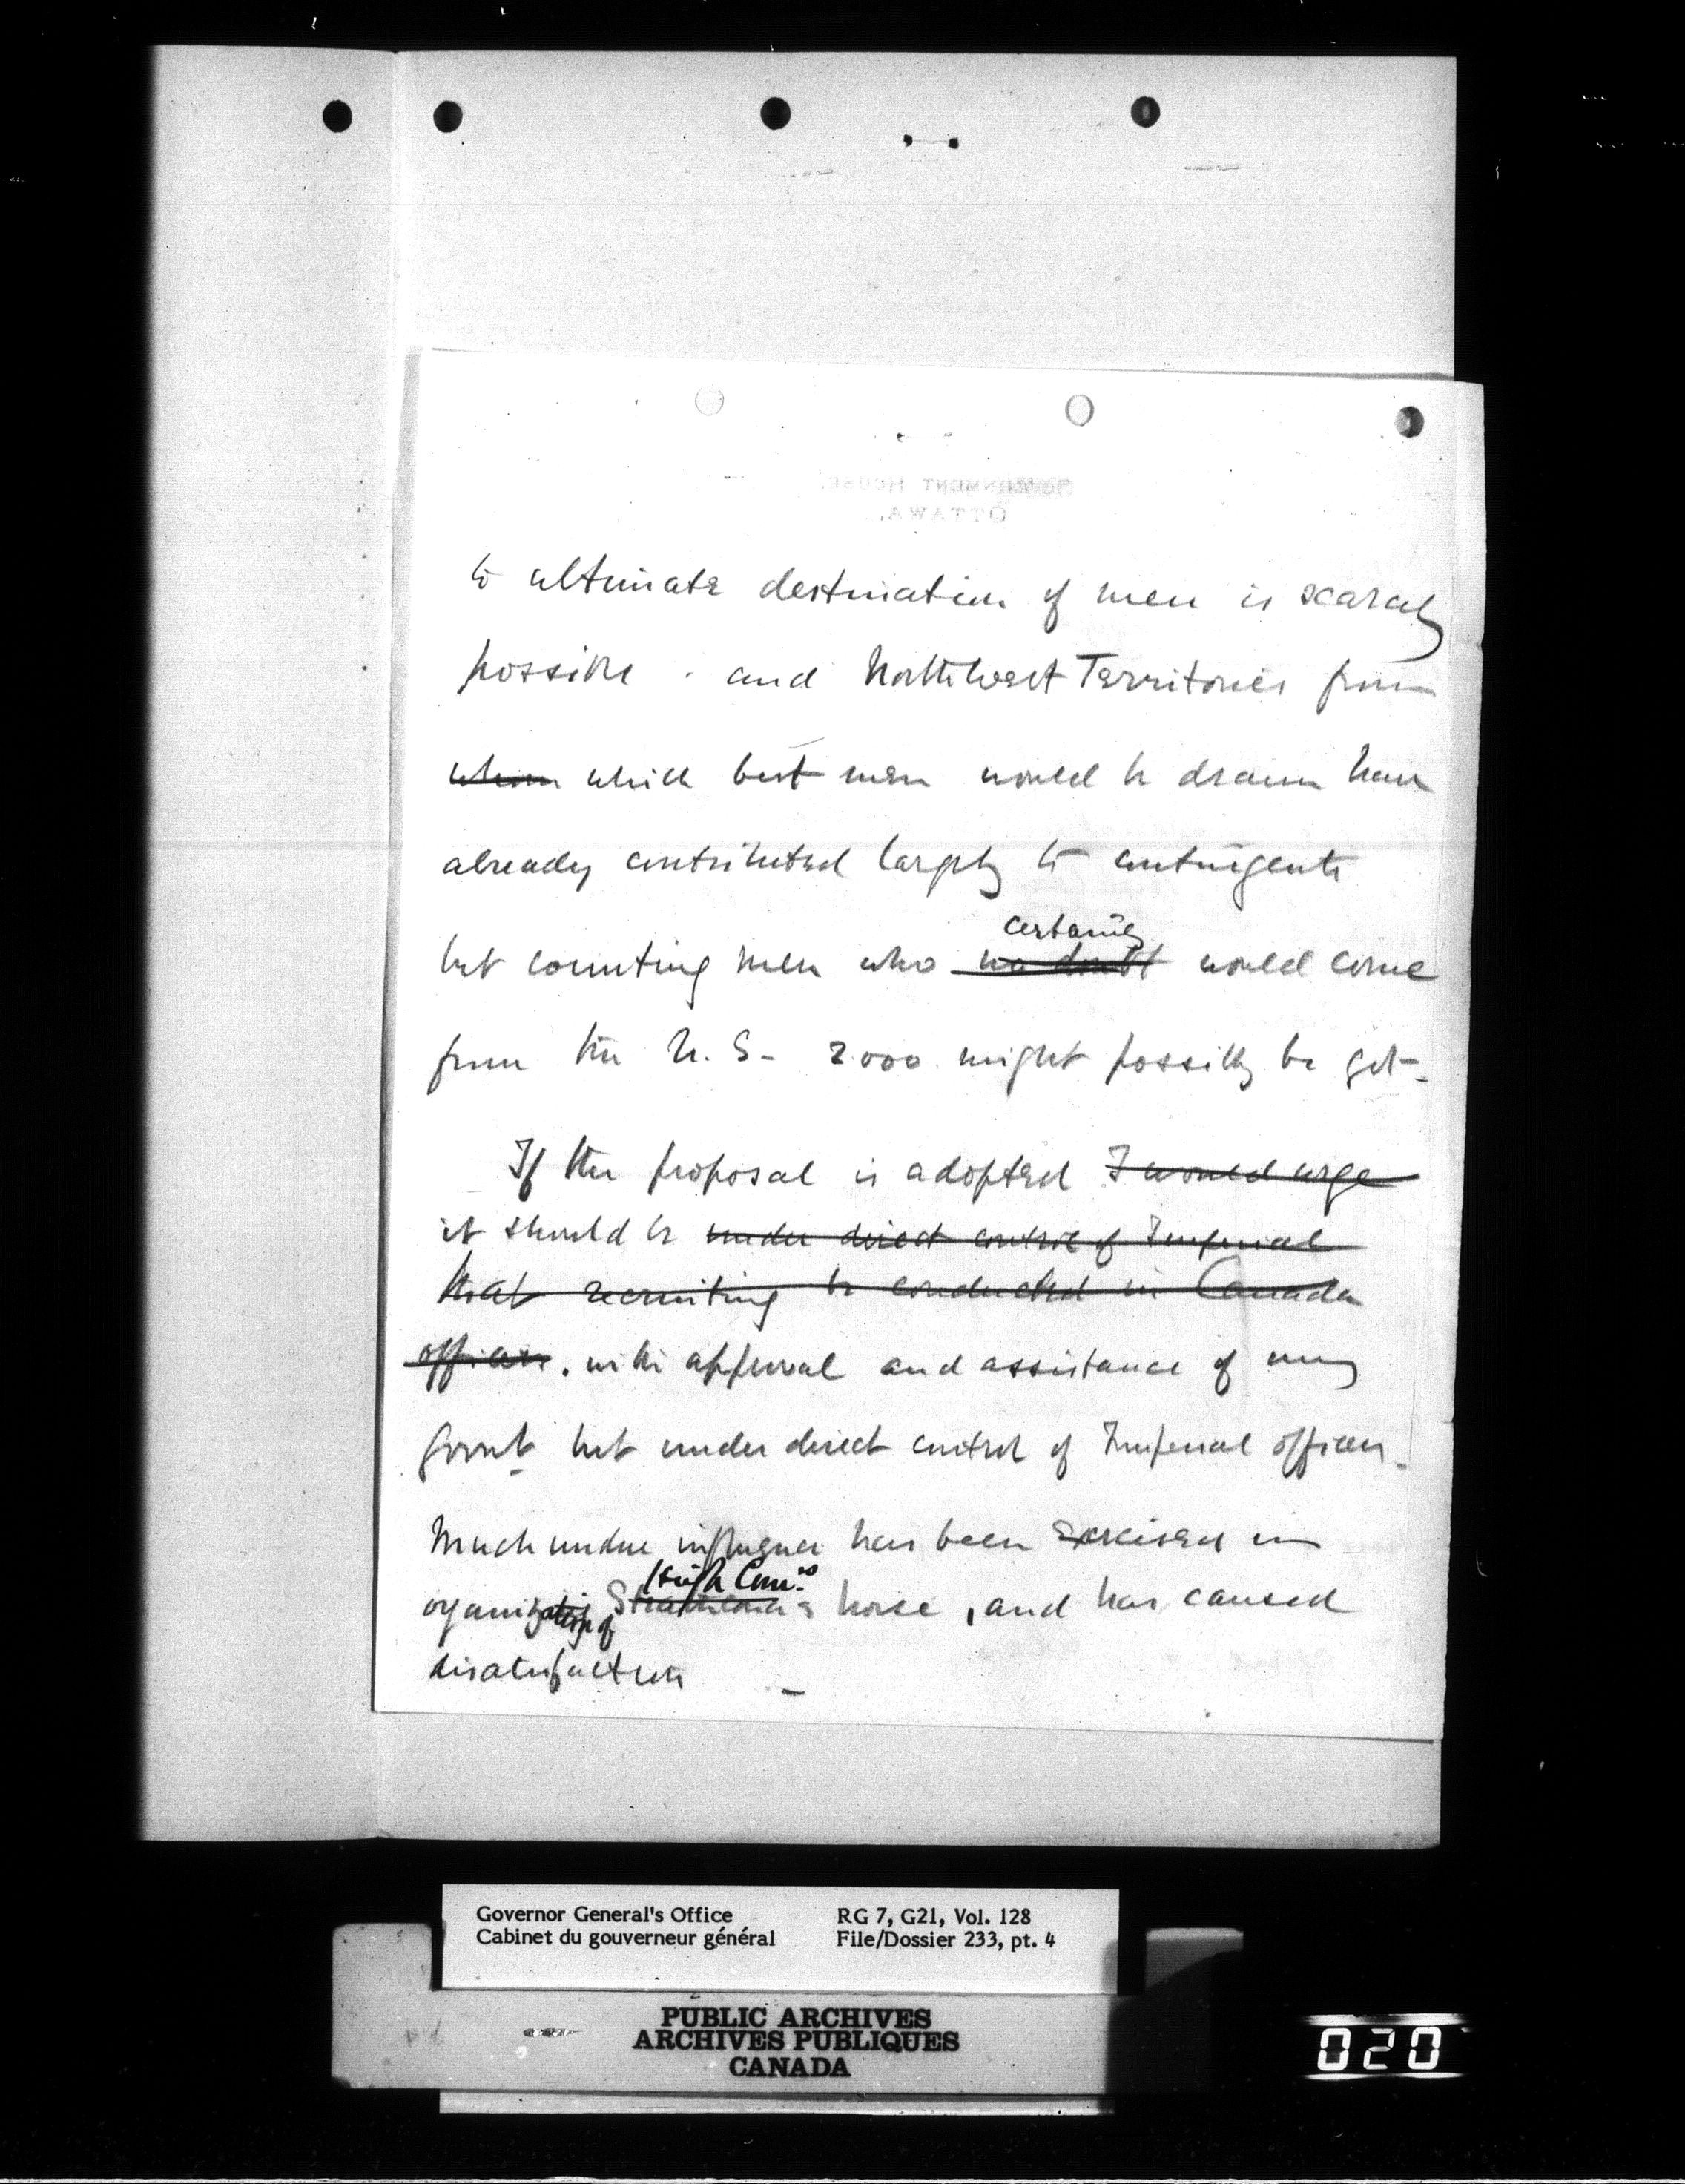 GOVERNMENT HOUSE.
OTTAWA.
to ultimate destination of men is scarcely
possible . and North West Territories from
whom which best men would be drawn have
already contributed largely to contingents
certainly
but counting men who no doubt would come
from the U. S - 2000 might possibly be got -
If the proposal is adopted I would urge
it should be under direct control of Imperial
that recruiting be conducted in Canada
officers. with approval and assistance of my
Govnt but under direct control of Imperial officers -
Much undue influence has been exercised in
High Comr's
organization of Strathcona's horse , and has caused
disatisfaction -
Governor General's Office
Cabinet du gouverneur général
RG 7, G21, Vol. 128
File/Dossier 233, pt. 4
PUBLIC ARCHIVES
ARCHIVES PUBLIQUES
CANADA
020